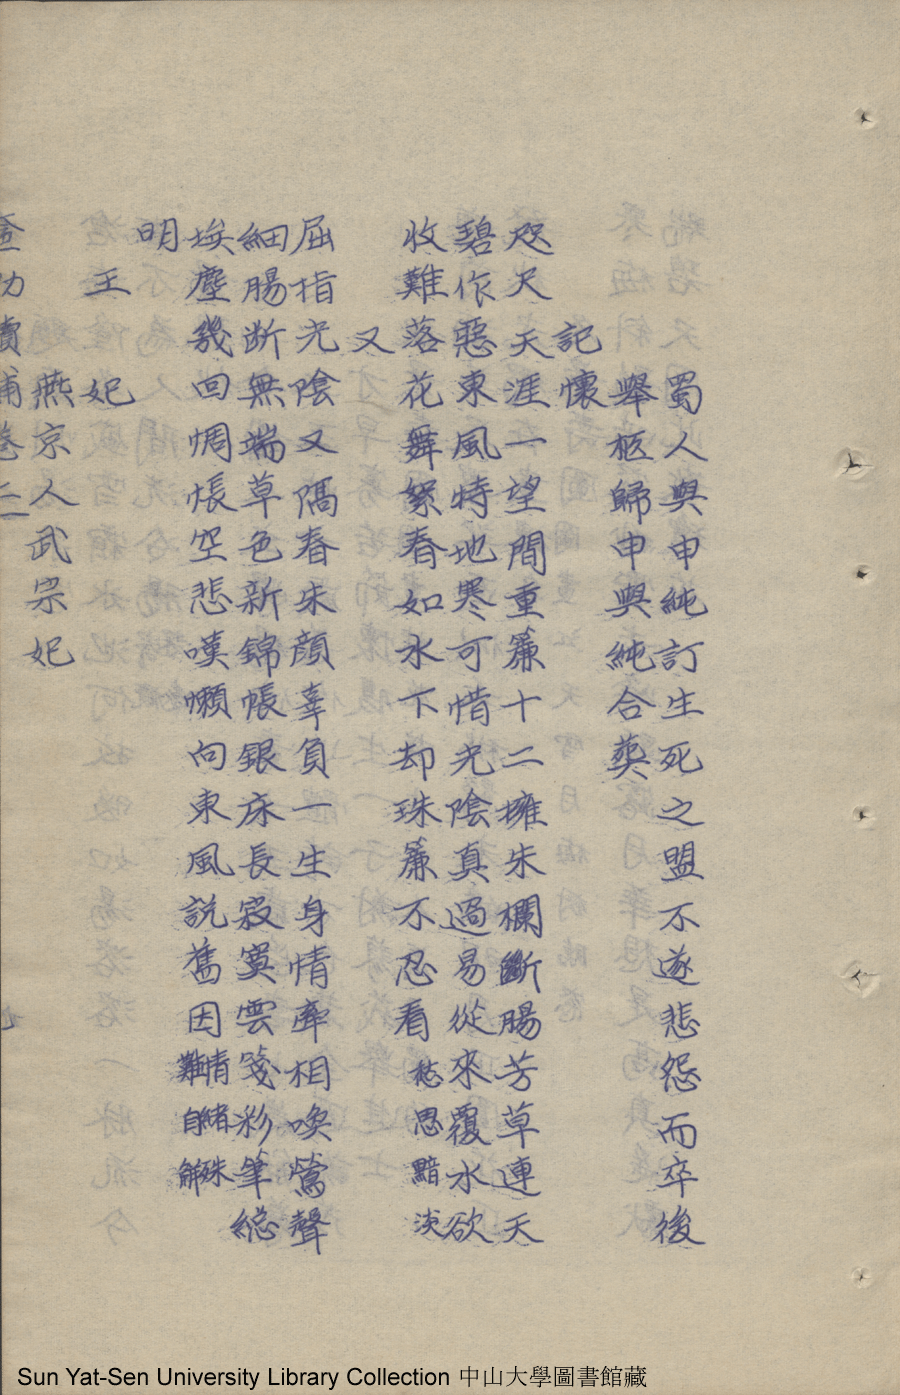 蜀人與申純訂生死之盟不遂悲怨而卒後
舉柩歸申與純合葬
記懷
咫尺天涯一望間重簾十二擁朱欄斷腸芳草連天
碧作惡東風特地寒可惜光陰真過易從來覆水欲
收難落花舞絮春如水下却珠簾不忍看愁思黯淡
又
屈指光陰又隔春朱顏辜負一生身情牽相喚鶯聲
細腸断無端草色新錦帳銀床長寂寞雲箋彩筆総
埃塵幾回惆悵空悲嘆懶向東風説舊因情緒殊難自解
明
王妃
燕京人武宗妃
續補卷二
Sun Yat-Sen University Library Collection 中山大學圖書館藏